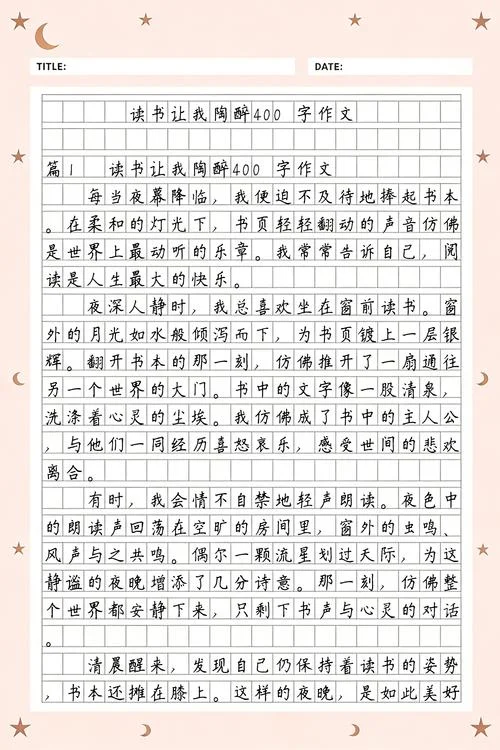 TITLE:
DATE:
读书让我陶醉400 字作文
篇1 读书让我陶醉400 字作文
每当夜幕降临，我便迫不及待地捧起书本
。在柔和的灯光下，书页轻轻翻动的声音仿佛
是世界上最动听的乐章。我常常告诉自己，阅
读是人生最大的快乐。
夜深人静时，我总喜欢坐在窗前读书。窗
外的月光如水般倾泻而下，为书页镀上一层银
辉。翻开书本的那一刻，仿佛推开了一扇通往
另一个世界的大门。书中的文字像一股清泉，
洗涤着心灵的尘埃。我仿佛成了书中的主人公
，与他们一同经历喜怒哀乐，感受世间的悲欢
离合。
有时，我会情不自禁地轻声朗读。夜色中
的朗读声回荡在空旷的房间里，窗外的虫鸣、
风声与之共鸣。偶尔一颗流星划过天际，为这
静谧的夜晚增添了几分诗意。那一刻，仿佛整
个世界都安静下来，只剩下书声与心灵的对话
。
清晨醒来，发现自己仍保持着读书的姿势
，书本还摊在膝上。这样的夜晚，是如此美好